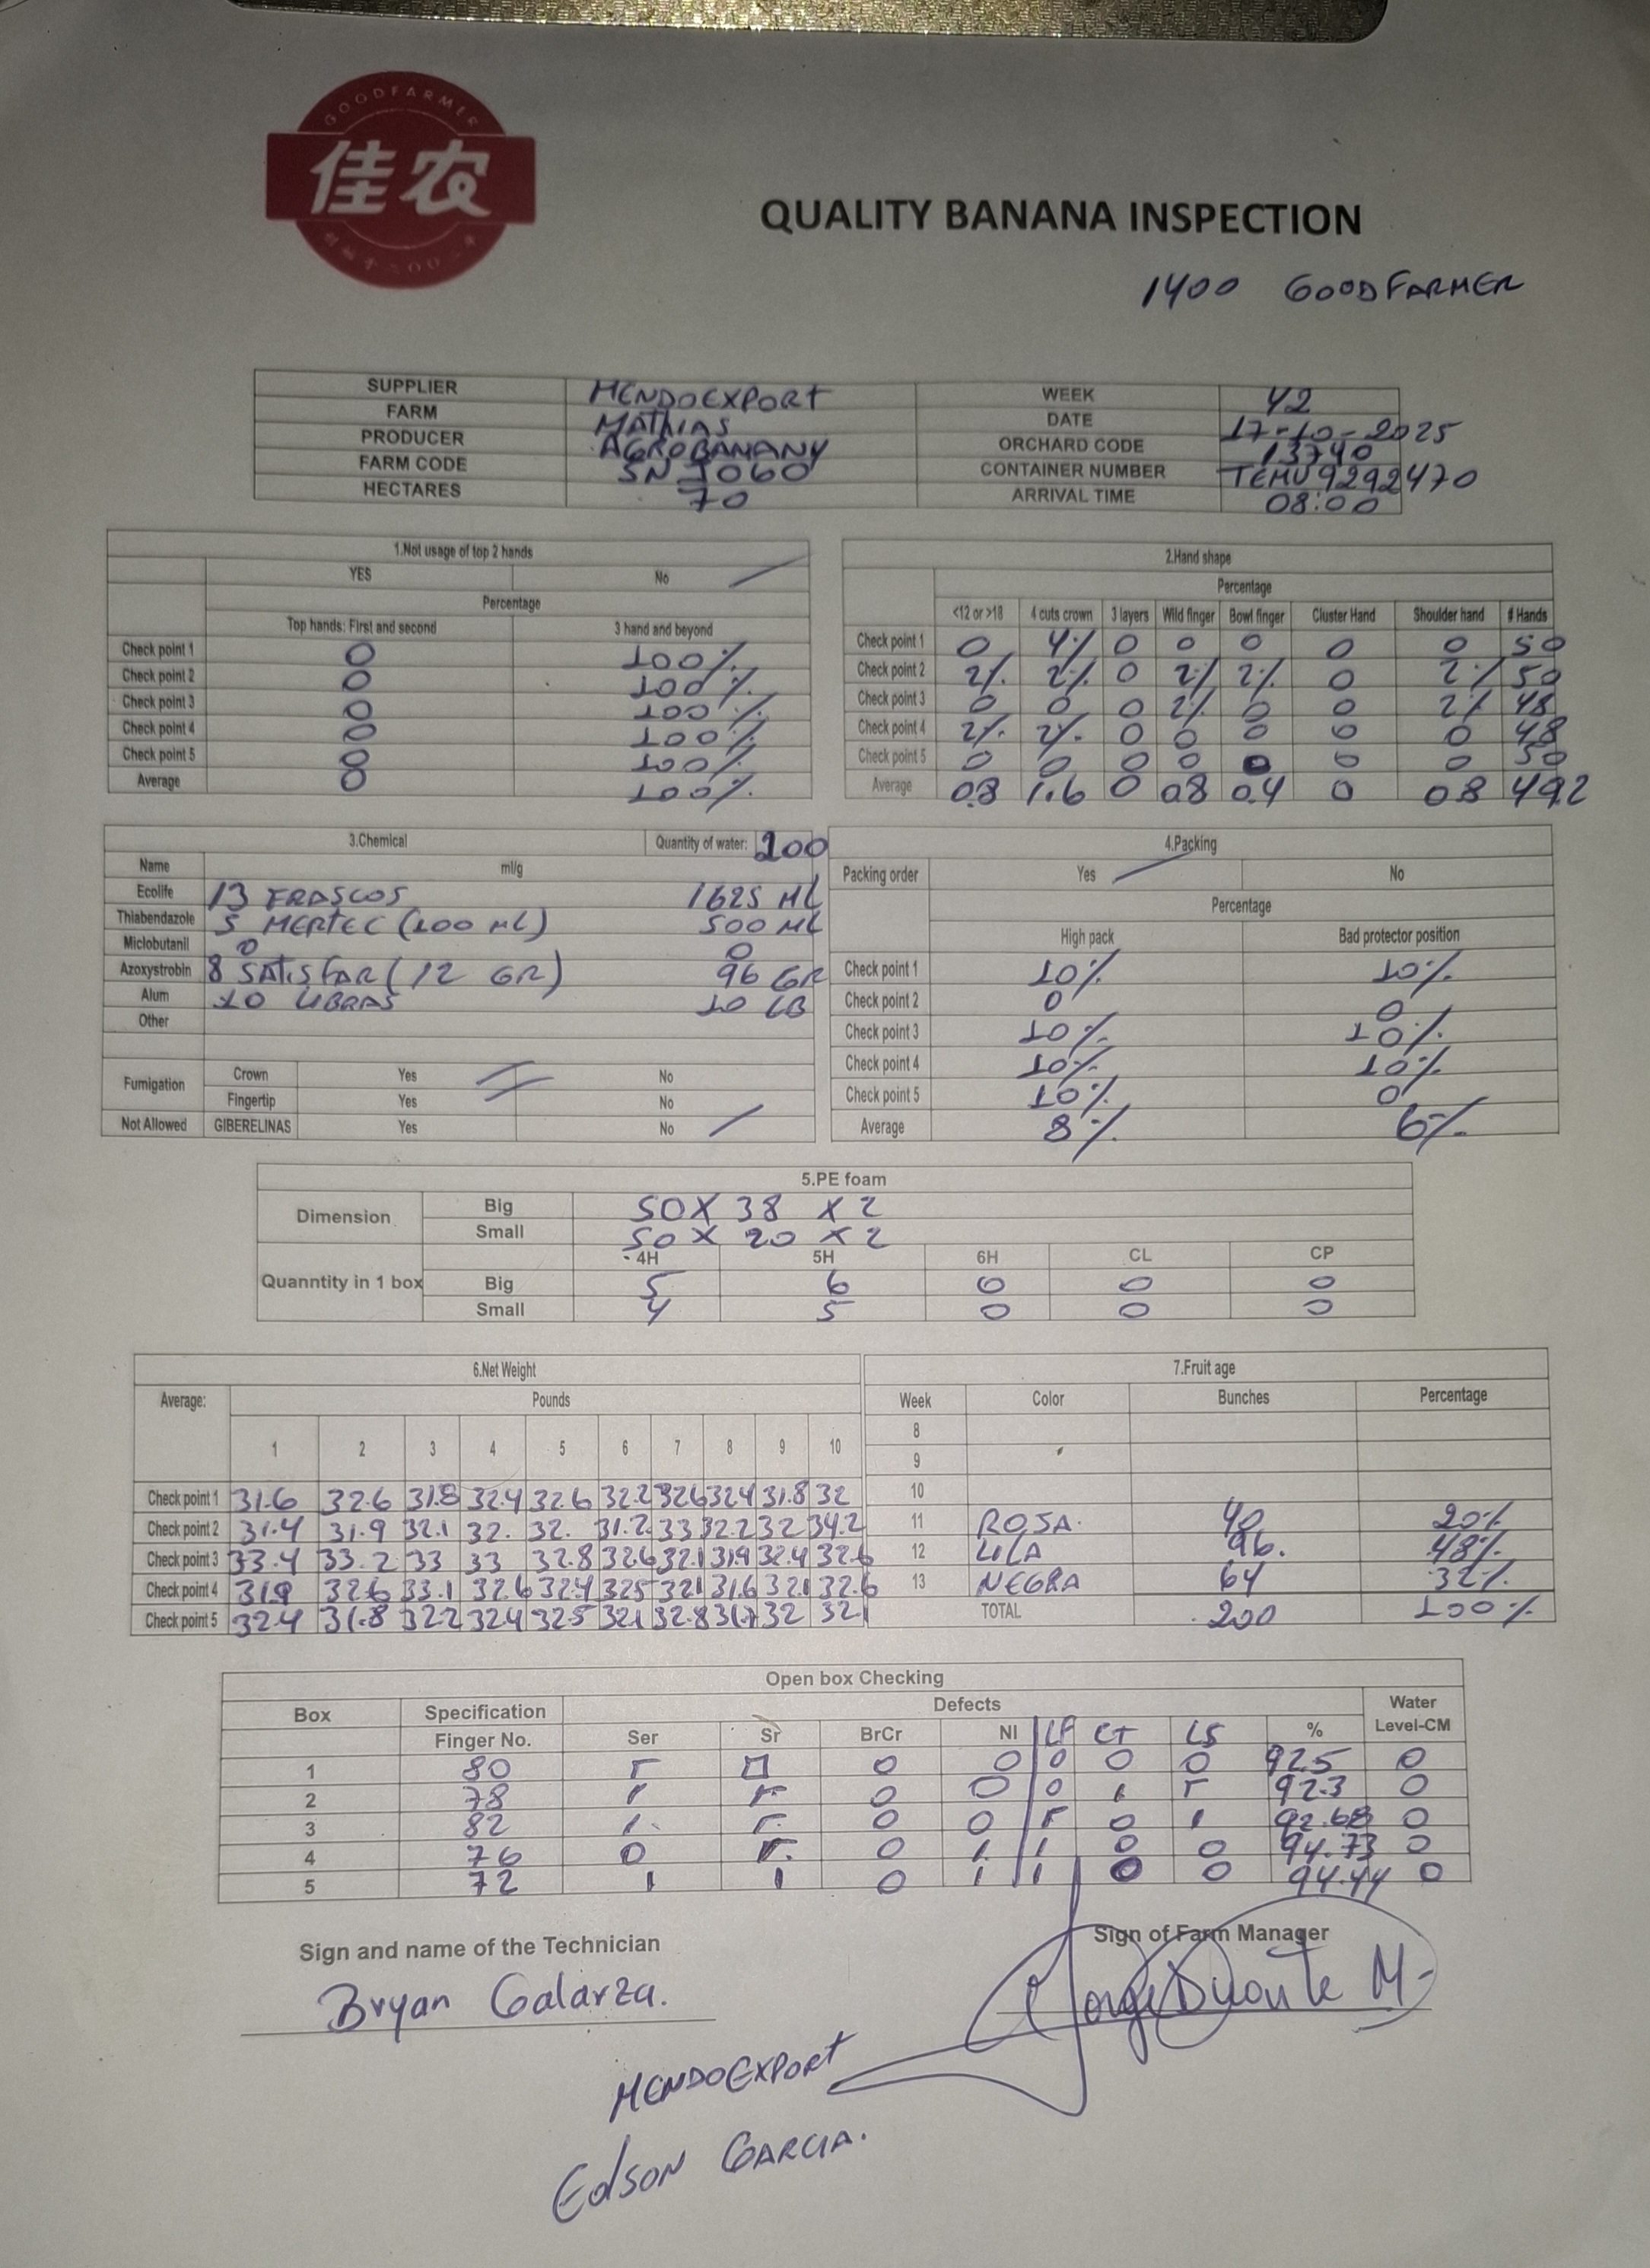 GOODFARMER
佳农
QUALITY BANANA INSPECTION
1400 GOODFARMER
SUPPLIER MENDOEXPORT WEEK 42
FARM MATHIAS DATE 17-10-2025
PRODUCER AGROBANANY ORCHARD CODE 13740
FARM CODE SN 1060 CONTAINER NUMBER TEMU9292470
HECTARES 70 ARRIVAL TIME 08:00
1.Not usage of top 2 hands
YES No /
Percentage
Top hands: First and second 3 hand and beyond
Check point 1 0 100%
Check point 2 0 100%
Check point 3 0 100%
Check point 4 0 100%
Check point 5 0 100%
Average 0 100%
2.Hand shape
Percentage
<12 or >18 4 cuts crown 3 layers Wild finger Bowl finger Cluster Hand Shoulder hand # Hands
Check point 1 0 4% 0 0 0 0 0 50
Check point 2 2% 2% 0 2% 2% 0 2% 50
Check point 3 0 0 0 2% 0 0 2% 48
Check point 4 2% 2% 0 0 0 0 0 48
Check point 5 0 0 0 0 0 0 0 50
Average 0.8 1.6 0 0.8 0.4 0 0.8 49.2
3.Chemical Quantity of water: 200
Name ml/g
Ecolife 13 FRASCOS 1625 ML
Thiabendazole 5 MERTEC (100 ML) 500 ML
Miclobutanil 0 0
Azoxystrobin 8 SATISFAR (12 GR) 96 GR
Alum 10 LIBRAS 10 LB
Other
Fumigation Crown Yes / No
Fingertip Yes / No
Not Allowed GIBERELINAS Yes No /
4.Packing
Packing order Yes / No
Percentage
High pack Bad protector position
Check point 1 10% 10%
Check point 2 0 0
Check point 3 10% 10%
Check point 4 10% 10%
Check point 5 10% 0
Average 8% 6%
5.PE foam
Dimension Big 50 X 38 X 2
Small 50 X 20 X 2
4H 5H 6H CL CP
Quanntity in 1 box Big 5 6 0 0 0
Small 4 5 0 0 0
6.Net Weight
Average: Pounds
1 2 3 4 5 6 7 8 9 10
Check point 1 31.6 32.6 31.8 32.4 32.6 32.2 32.6 32.4 31.8 32
Check point 2 31.4 31.9 32.1 32. 32. 31.2 33 32.2 32 34.2
Check point 3 33.4 33.2 33 33 32.8 32.6 32.1 31.9 32.4 32.6
Check point 4 31.9 32.6 33.1 32.6 32.4 32.5 32.1 31.6 32.1 32.6
Check point 5 32.4 31.8 32.2 32.4 32.5 32.1 32.8 31.7 32 32.1
7.Fruit age
Week Color Bunches Percentage
8
9
10
11 ROSA. 40 20%
12 LILA 96. 48%
13 NEGRA 64 32%
TOTAL 200 100%
Open box Checking
Box Specification Defects Water
Finger No. Ser Sr BrCr NI LF CT LS % Level-CM
1 80 0 0 0 0 92.5 0
2 78 0 0 0 92.3 0
3 82 0 0 0 92.68 0
4 76 0 0 0 0 94.73 0
5 72 0 0 0 94.44 0
Sign and name of the Technician
Sign of Farm Manager
Bryan Galarza.
Jorge Duarte M-
MENDOEXPORT
Edson GARCIA.